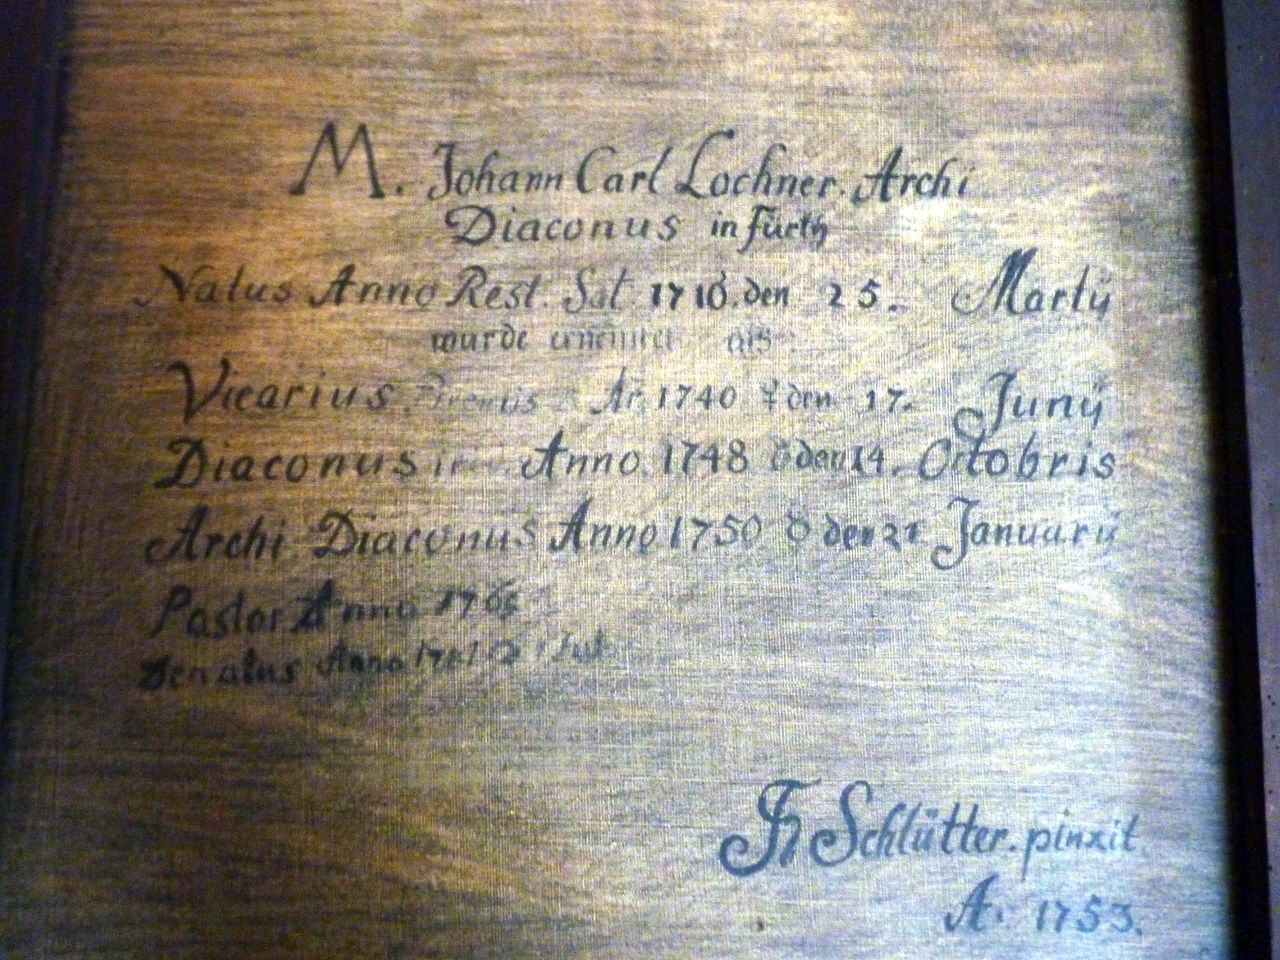 M. Johann Carl Lochner. Archi
Diaconus in Fürth
Natus Anno Rest. Sal. 1710. den 25. Martÿ
wurde als
Vicarius A. 1740 ♀ den 17. Junÿ
Diaconus Anno 1748 den 14. Octobris
Archi Diaconus Anno 1750 den 21 Januarÿ
Pastor Anno 1765
Denatus Anno
Schlütter. pinxit.
A. 1753.